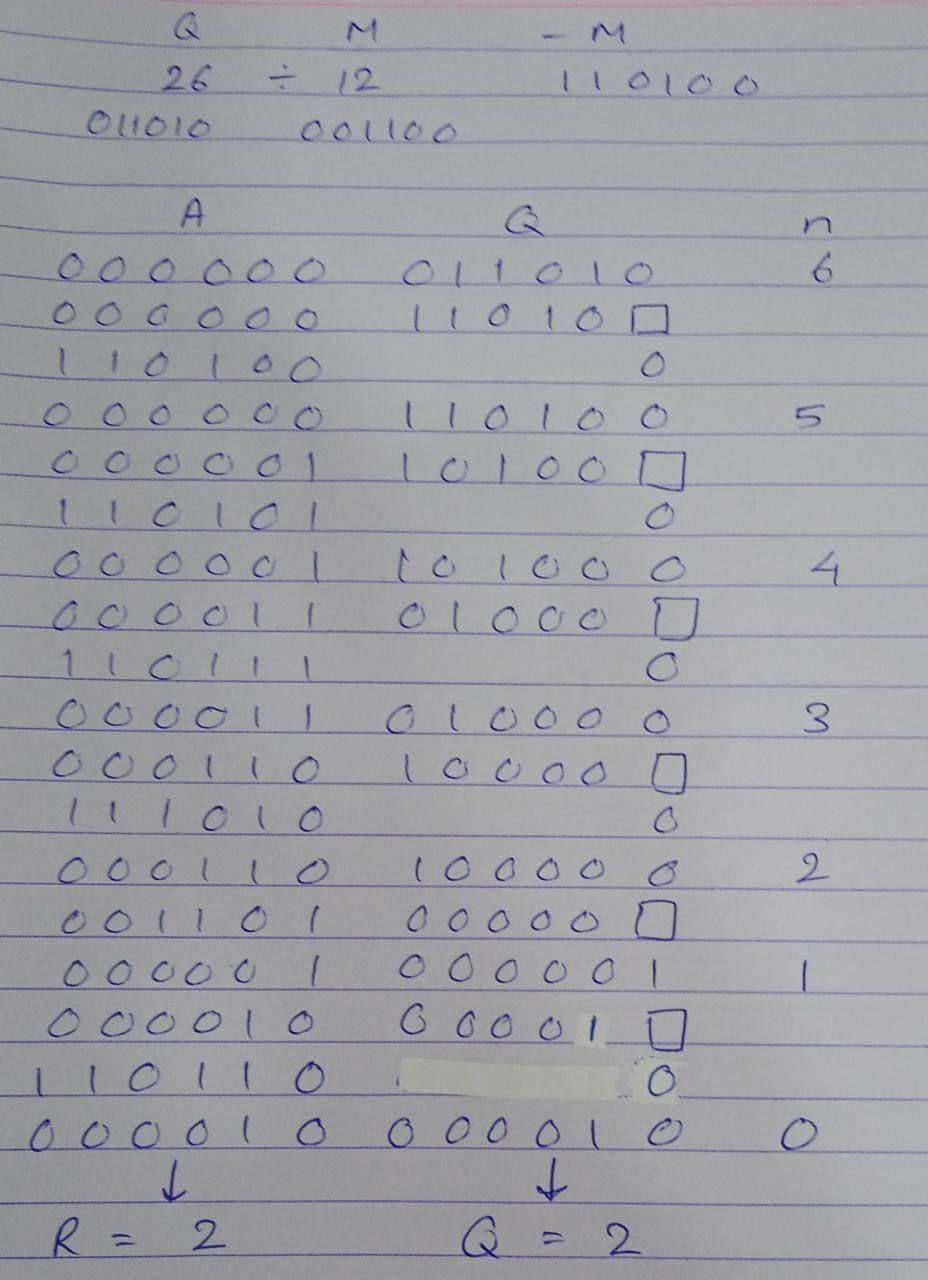 Q M - M
26 ÷ 12 110100
011010 001100
A Q n
000000 011010 6
000000 11010□
110100 0
000000 110100 5
000001 10100□
110101 0
000001 101000 4
000011 01000□
110111 0
000011 010000 3
000110 10000□
111010 0
000110 100000 2
001101 00000□
000001 000001 1
000010 00001□
110110 0
000010 000010 0
↓ ↓
R = 2 Q = 2